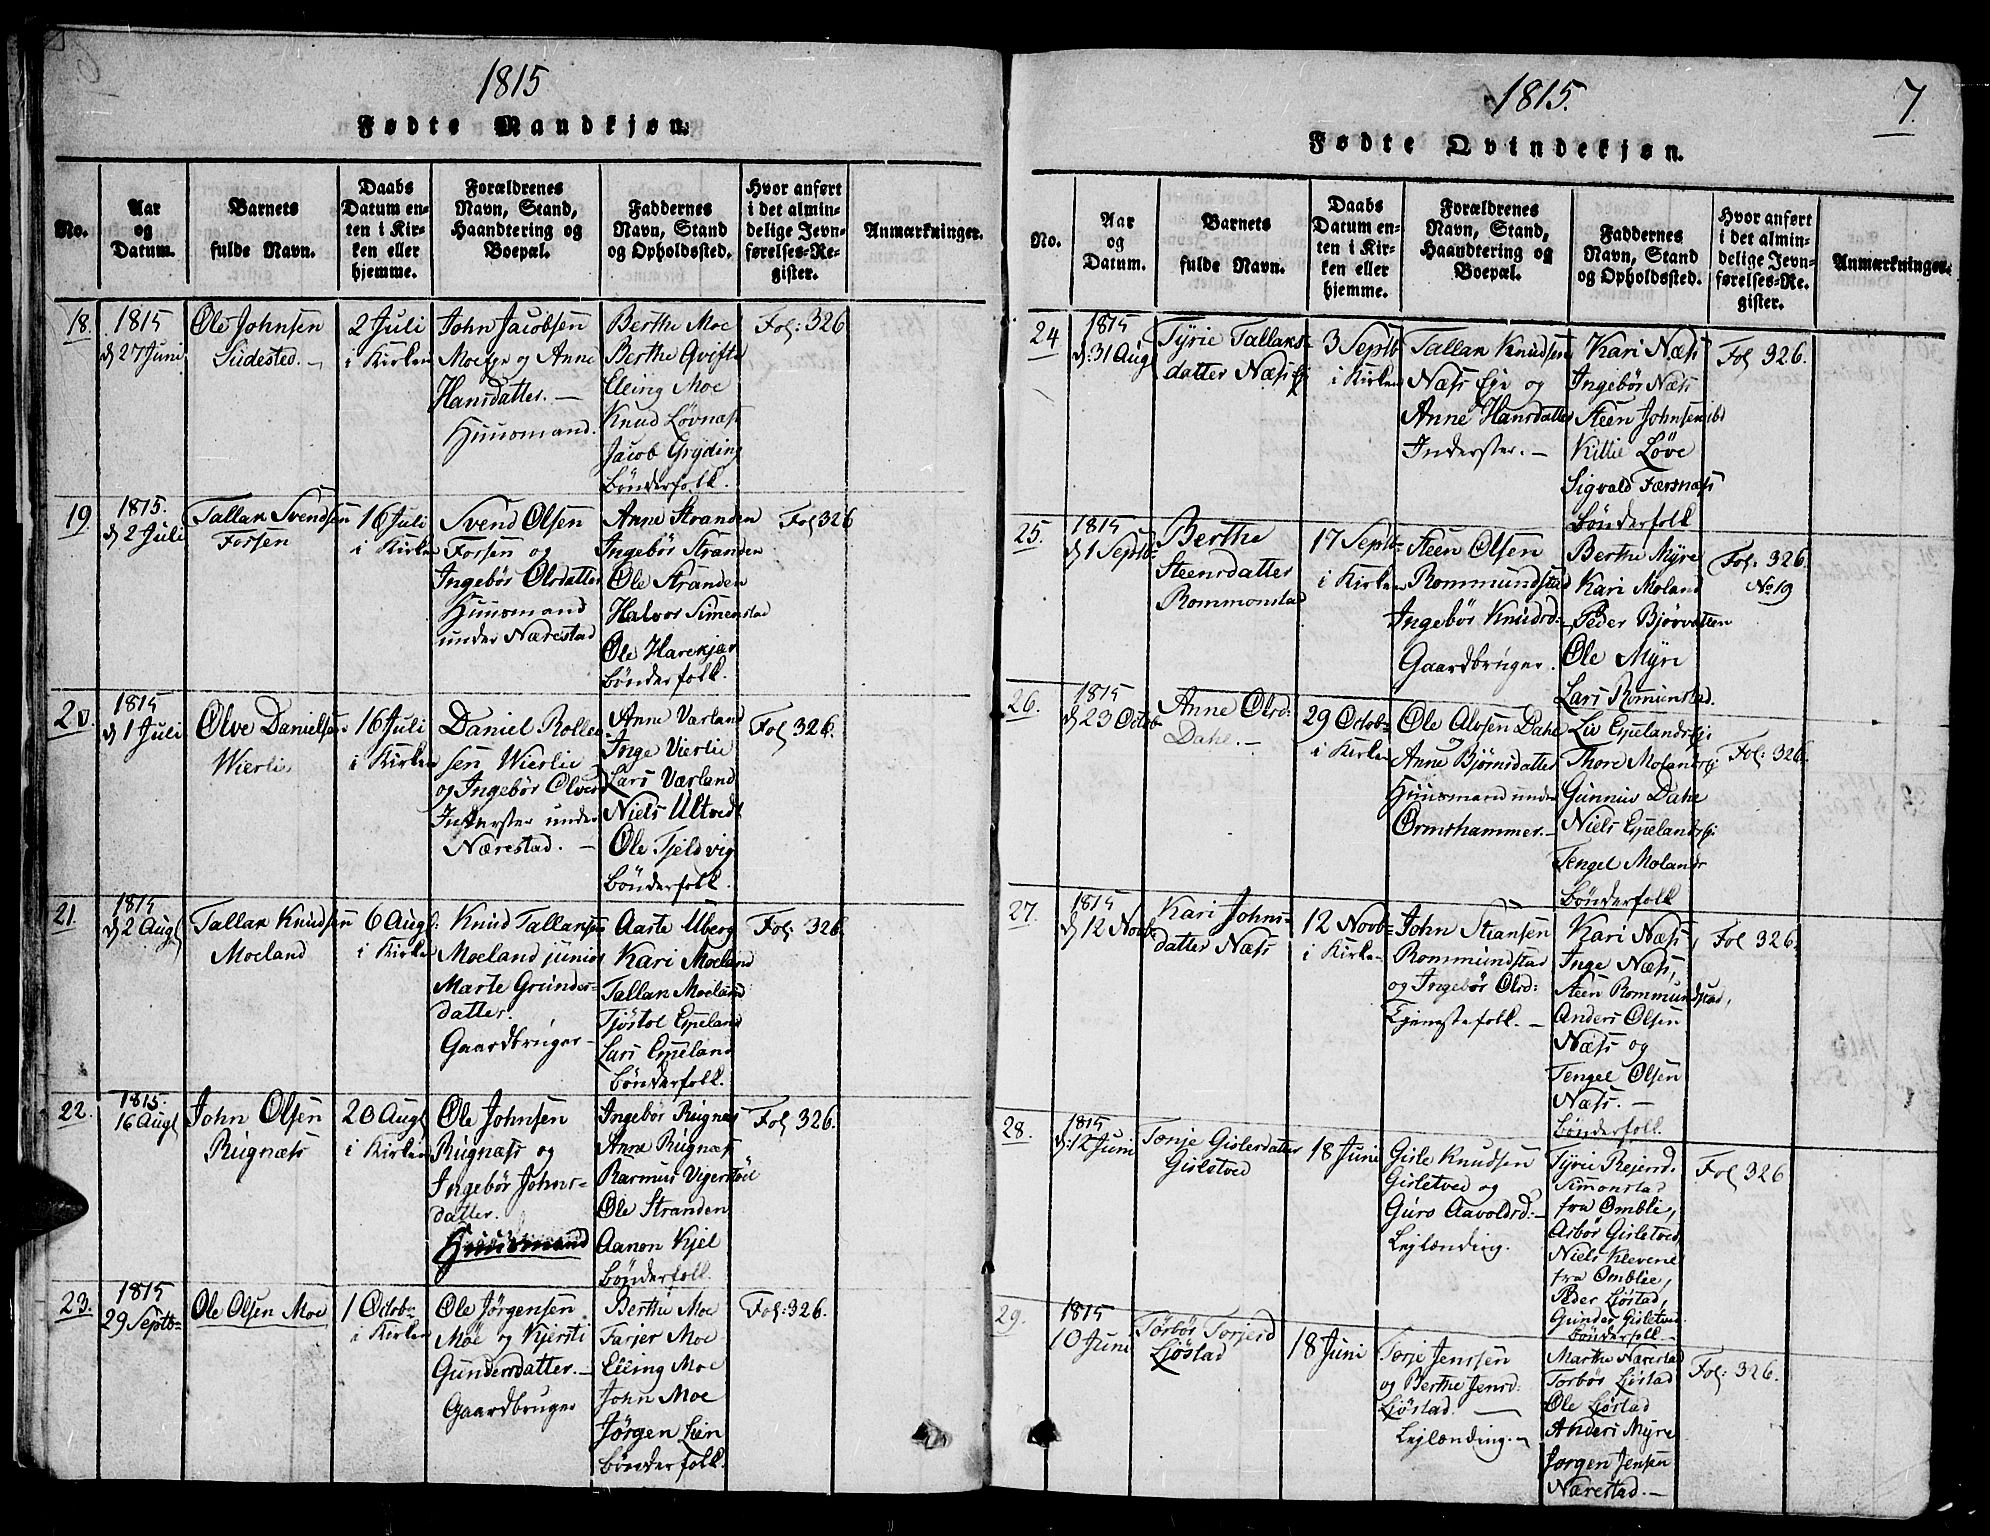 1815
Fødte Mandkjøn.
No.
Aar
og
Datum.
Barnets
fulde Navn.
Daabs
Datum en-
ten i Kir-
ken eller
hjemme.
Forældrenes
Navn, Stand,
Haandtering og
Boepæl.
Faddernes
Navn, Stand
og Opholdssted.
Hvor anført
i det almin-
delige Jevn-
førelses-Re-
gister.
Anmærkninger.
18.
1815
d 27 Juni
Ole Johnsen
Sudested.
2 Juli
i Kirken
John Jacobsen
Moe og Anne
Hansdatter.
Huusmand.
Berthe Moe
Berthe Qvifte
Elling Moe
Knud Løvnæss
Jacob Gryding
bønderfolk.
Fol: 326
19.
1815.
d 2 Juli
Tallak Svendsen
Forsen
16 Juli
i Kirken
Svend Olsen
Forsen og
Ingebør Olsdatter
Huusmand
under Nærestad
Anne Stranden
Ingebør Stranden
Ole Stranden
Halvor Simenstad
Ole Harekjær
bønderfolk.
Fol 326
20.
1815
d 1 Juli
Olve Danielsen
Wierli
16 Juli
i Kirken
Daniel Rolle-
sen Wierlie
og Ingebør Olvesd
Inderster under
Nærestad.
Anne Varland
Inge Vierlie
Lars Værland
Niels Ultvedt
Ole Tjeldvig
bønderfolk.
Fol 326.
21.
1815
d 2 Augl
Tallak Knudsen
Moeland
6 Augl:
i Kirken
Knud Tallaksen
Moeland junior
Marte Gunders-
datter.
Gaardbruger-
Aaste Uberg
Kari Moeland
Tallak Moeland
Tjöstol Epeland
Lars Epeland
bønderfolk.
Fol: 326.
22.
1815.
16 Augl
John Olsen
Rugnæss
20 Augl
i Kirken
Ole Johnsen
Rugnæss og
Ingebør Johns-
datter.
Huusmand
Ingebør Rugnæs
Anne Rugnæss
Rasmus Vigerstöl
Ole Stranden
Aanon Kjel
bønderfolk
Fol 326.
23.
1815
29 Septb-
Ole Olsen Moe
1 Octob-
i Kirken
Ole Jørgensen
Moe og Kjersti
Gundersdatter.
Gaardbruger
Berthe Moe
Tarjer Moe
Elling Moe
John Moe
Jørgen Lien
bønderfolk.
Fol: 326.
1815.
7.
Fødte Qvindekjøn.
No.
Aar
og
Datum.
Barnets
fulde Navn.
Daabs
Datum en-
ten i Kir-
ken eller
hjemme.
Forældrenes
Navn, Stand,
Haandtering og
Boepæl.
Faddernes
Navn, Stand
og Opholdssted.
Hvor anført
i det almin-
delige Jevn-
førelses-Re-
gister.
Anmærkninger.
24
1815
d: 31 Augl
Tyrie Tallaks-
datter Næss Ej
3 Septb
i Kirken
Tallak Knudsen
Næss Eje og
Anne Hansdatter
Inderster.
Kari Næss
Ingebør Næss
Steen Johnsen ibd
Killie Løve
Sigvald Færsnæss
bønderfolk
Fol 326.
25.
1815
d 1 Septb-
Berthe
Steensdatter
Rommonstad
17 Septb-
i Kirken
Steen Olsen
Rommundstad
Ingebør Knudsd:
Gaardbruger.
Berthe Myre
Kari Moland
Peder Bjørvatten
Ole Myre
Lars Romunstad.
Fol: 326.
No 19
26.
1815
d 23 Octob-
Anne Olsd:
Dahe.
29 Octob-
i Kirken
Ole Alvsen Dahe
Anne Bjørnsdatter
Huusmand under
Ormshammer.
Liv Epelands Ej
Thore Molands Ej
Gunniv Dahe
Niels Epelands Ej:
Tengel Molands
bønderfolk
Fol: 326.
27.
1815
d 12 Novb-
Kari Johns-
datter Næss
12 Novb-
i Kirken
John Stiansen
Rommundstad
og Ingebør Olsd:
Tjenestefolk.
Kari Næss,
Inge Næss,
Steen Rommundstad,
Anders Olsen
Næss og
Tengel Olsen
Næss.
bønderfolk.
Fol 326.
28.
1815
d: 12 Juni
Tonje Gislesdatter
Gislstved
18 Juni
Gisle Knudsen
Gisletved og
Guro Aavoldsd:
Lejlænding.
Tyrie Rejersd:
Simonstad
fra Omblie,
Asbør Gisletved
Niels Klevene
fra Omblie,
Peder Ljøstad,
Gunder Gisletved
bønderfolk
Fol 326
29.
1815
10 Juni
Torbør Torjesd
Ljöstad
18 Juni
Torje Jensen
og Berthe Jensd:
Ljöstad.
Lejlænding.
Marthe Nærestad
Torbør Ljöstad
Ole Ljöstad
Anders Myre
Jørgen Jensen
Nærestad.
Fol: 326.